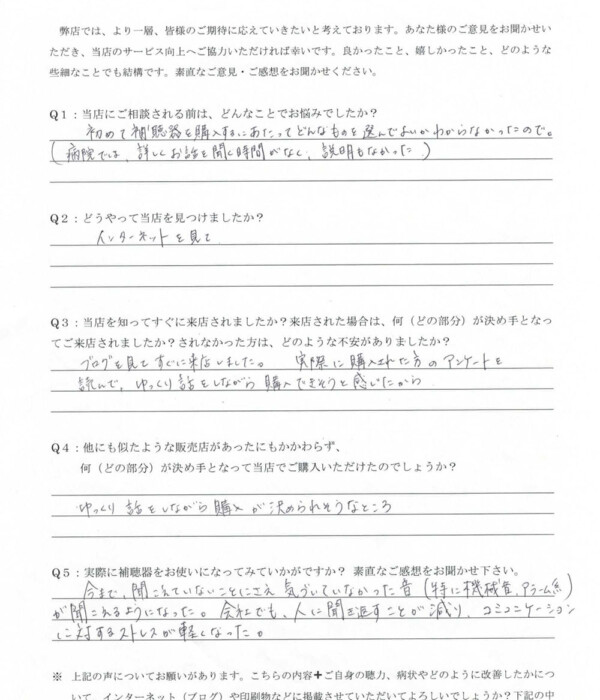 弊店では、より一層、皆様のご期待に応えていきたいと考えております。あなた様のご意見をお聞かせい
ただき、当店のサービス向上へご協力いただければ幸いです。良かったこと、嬉しかったこと、どのような
些細なことでも結構です。素直なご意見・ご感想をお聞かせください。
Q1：当店にご相談される前は、どんなことでお悩みでしたか？
初めて補聴器を購入するにあたってどんなものを選んでよいかわからなかったので。
(病院では、詳しくお話を聞く時間がなく、説明もなかった)
Q2：どうやって当店を見つけましたか？
インターネットを見て
Q3：当店を知ってすぐに来店されましたか？来店された場合は、何（どの部分）が決め手となっ
てご来店されましたか？されなかった方は、どのような不安がありましたか？
ブログを見てすぐに来店しました。 実際に購入された方のアンケートを
読んで、ゆっくり話をしながら購入できそうと感じたから
Q4：他にも似たような販売店があったにもかかわらず、
何（どの部分）が決め手となって当店でご購入いただけたのでしょうか？
ゆっくり話をしながら購入が決められそうなところ
Q5：実際に補聴器をお使いになってみていかがですか？ 素直なご感想をお聞かせ下さい。
今まで、聞こえていないことにさえ気づいていなかった音(特に機械音、アラーム系)
が聞こえるようになった。会社でも、人に聞き返すことが減り、コミュニケーション
に対するストレスが軽くなった。
※ 上記の声についてお願いがあります。こちらの内容+ご自身の聴力、病状やどのように改善したかにつ
いて、インターネット（ブログ）や印刷物などに掲載させていただいてよろしいでしょうか？下記の中